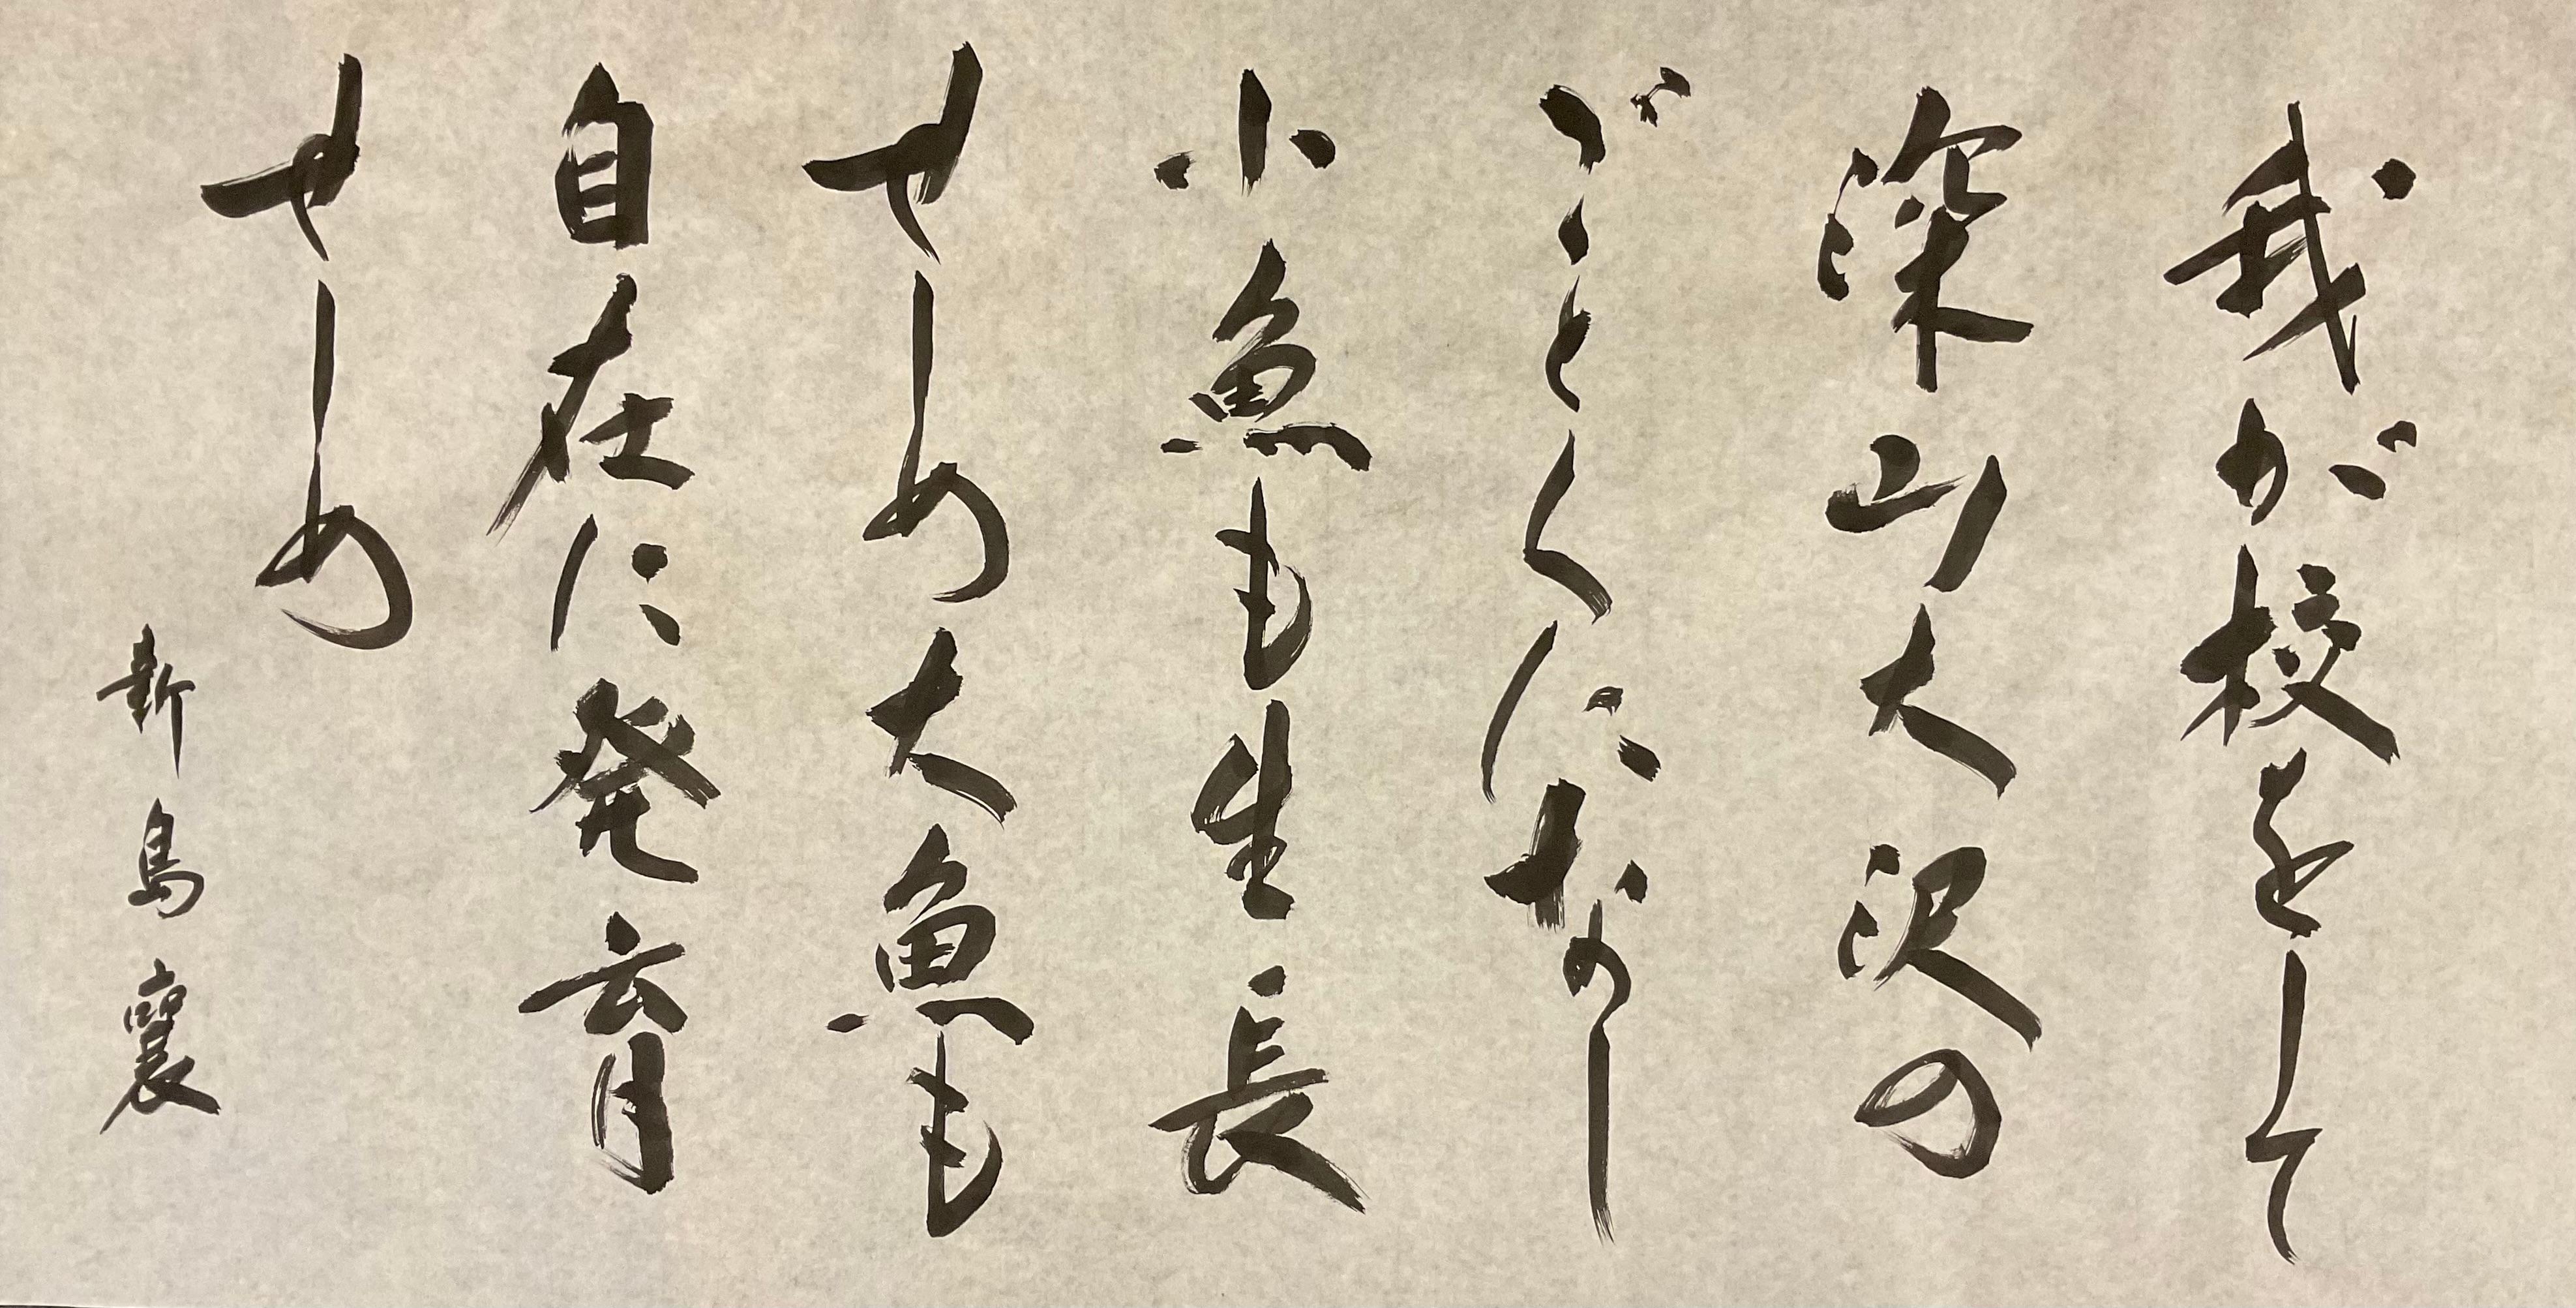 我が校をして
深山大沢の
ごとくになし
小魚も生長
せしめ大魚も
自在に発育
せしめ
新島襄